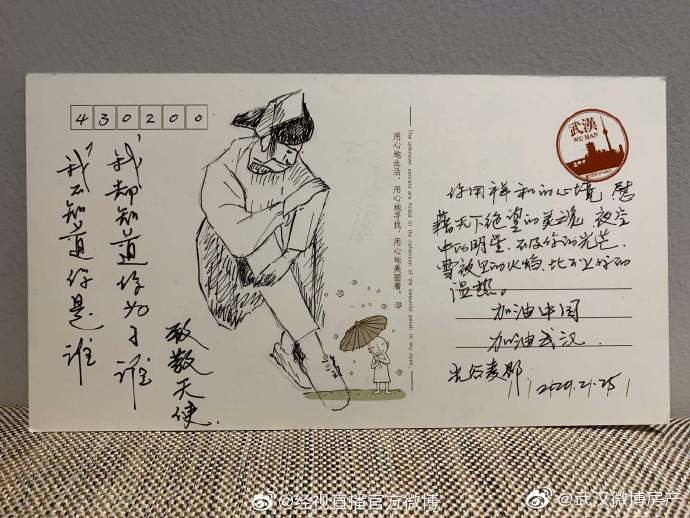 430200
"我不知道你是谁
我却知道你为了谁"
致敬天使.
用心地生活，用心地寻找，用心地美丽着。
The unknown secrets are hidden in the reflection of the beautiful petals in my eyes.
武漢
WU HAN
你用祥和的心境 慰
藉天下绝望的灵魂 夜空
中的明星，不及你的光芒，
雪夜里的火焰，比不上你的
温热。
加油中国
加油武汉
光谷
@经视直播官方微博
@武汉微博房产